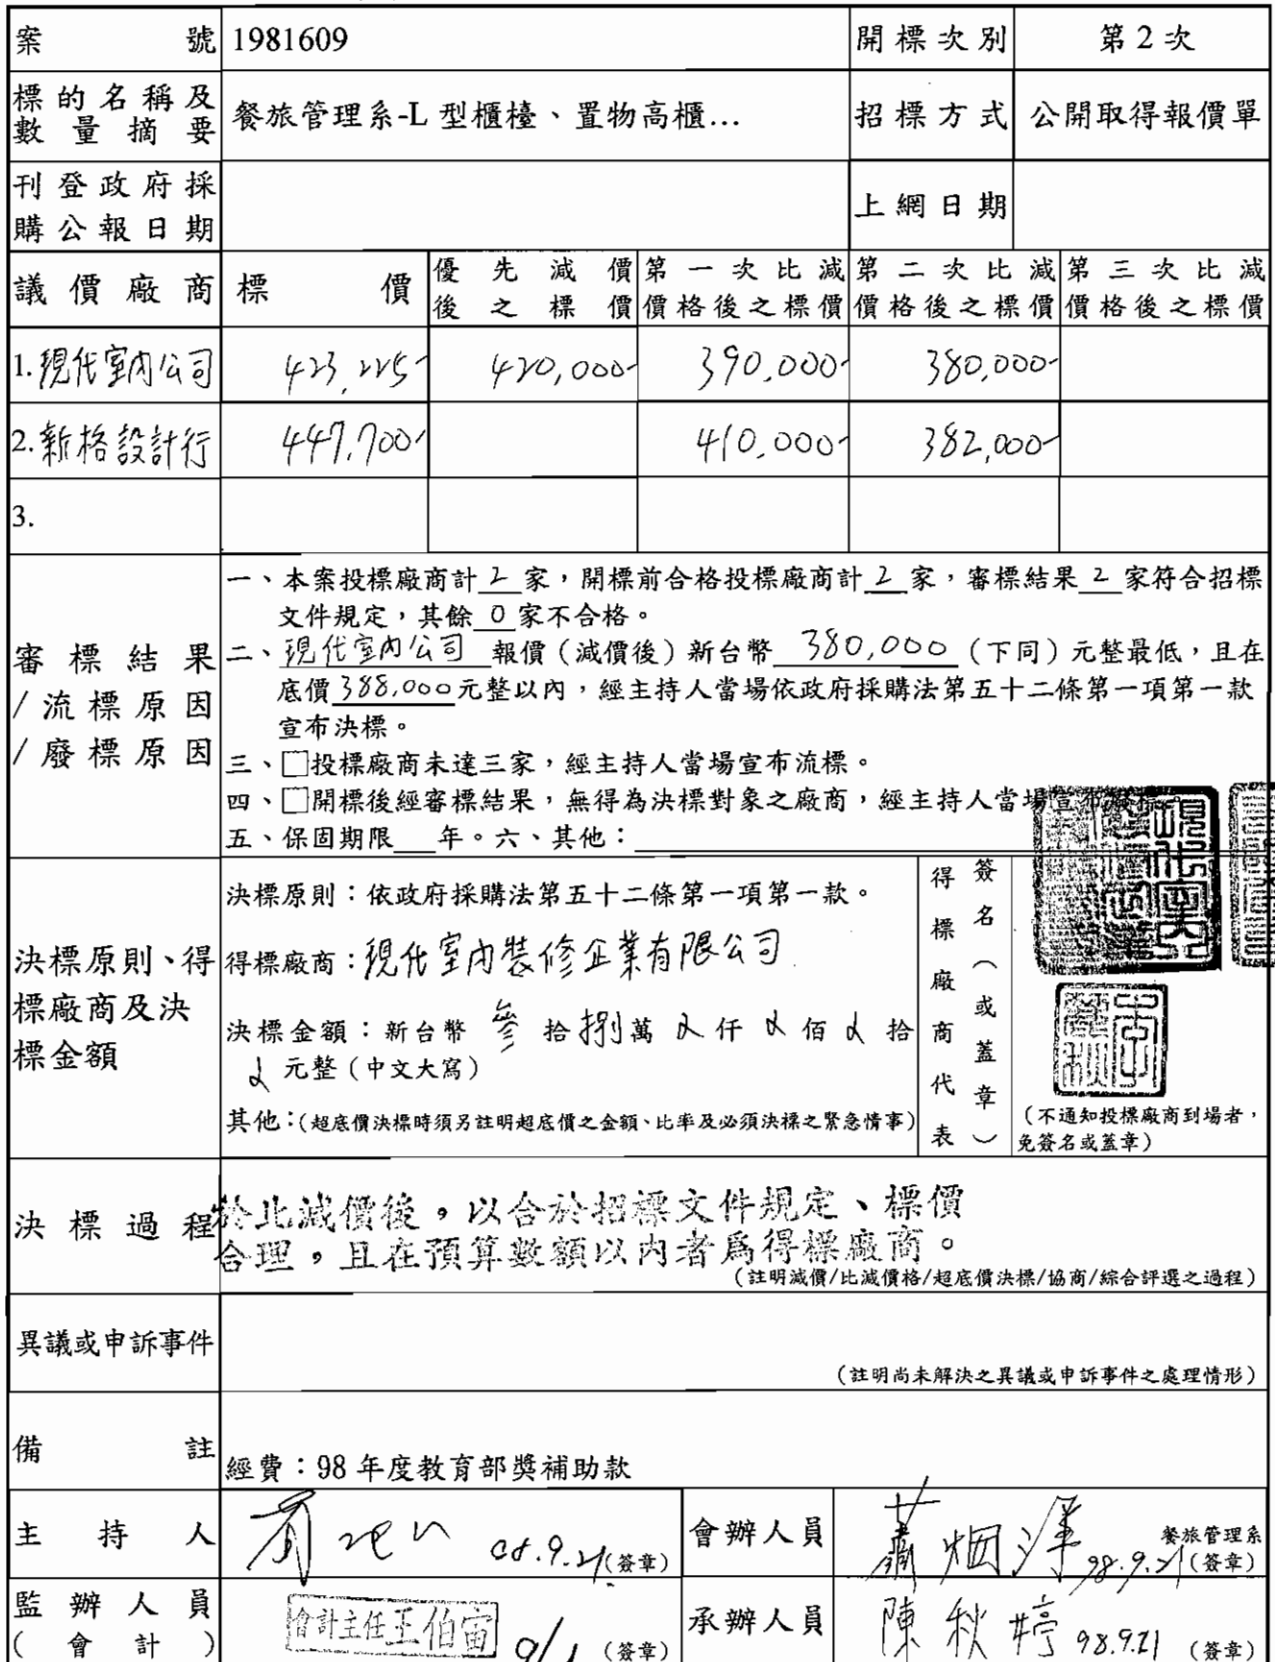 案號 1981609 開標次別 第2次
標的名稱及數量摘要 餐旅管理系-L型櫃檯、置物高櫃… 招標方式 公開取得報價單
刊登政府採購公報日期 上網日期
議價廠商 標價 優先減價後之標價 第一次比減價格後之標價 第二次比減價格後之標價 第三次比減價格後之標價
1.現代室內公司 423,225- 420,000- 390,000- 380,000-
2.新格設計行 447,700- 410,000- 382,000-
3.
審標結果/流標原因/廢標原因
一、本案投標廠商計 2 家，開標前合格投標廠商計 2 家，審標結果 2 家符合招標
文件規定，其餘 0 家不合格。
二、現代室內公司 報價（減價後）新台幣 380,000 （下同）元整最低，且在
底價 388,000 元整以內，經主持人當場依政府採購法第五十二條第一項第一款
宣布決標。
三、□投標廠商未達三家，經主持人當場宣布流標。
四、□開標後經審標結果，無得為決標對象之廠商，經主持人當場宣布廢標。
五、保固期限___年。六、其他：
決標原則、得標廠商及決標金額
決標原則：依政府採購法第五十二條第一項第一款。
得標廠商：現代室內裝修企業有限公司
決標金額：新台幣 參 拾 捌 萬 仟 佰 拾
元整（中文大寫）
其他：（超底價決標時須另註明超底價之金額、比率及必須決標之緊急情事）
得標廠商代表
簽名（或蓋章）
（不通知投標廠商到場者，
免簽名或蓋章）
決標過程
於比減價後，以合於招標文件規定、標價
合理，且在預算數額以內者為得標廠商。
（註明減價/比減價格/超底價決標/協商/綜合評選之過程）
異議或申訴事件
（註明尚未解決之異議或申訴事件之處理情形）
備註 經費：98 年度教育部獎補助款
主持人 98.9.21 （簽章） 會辦人員 98.9.21 餐旅管理系（簽章）
監辦人員（會計） 會計主任王伯宙 （簽章） 承辦人員 陳秋婷 98.9.21 （簽章）